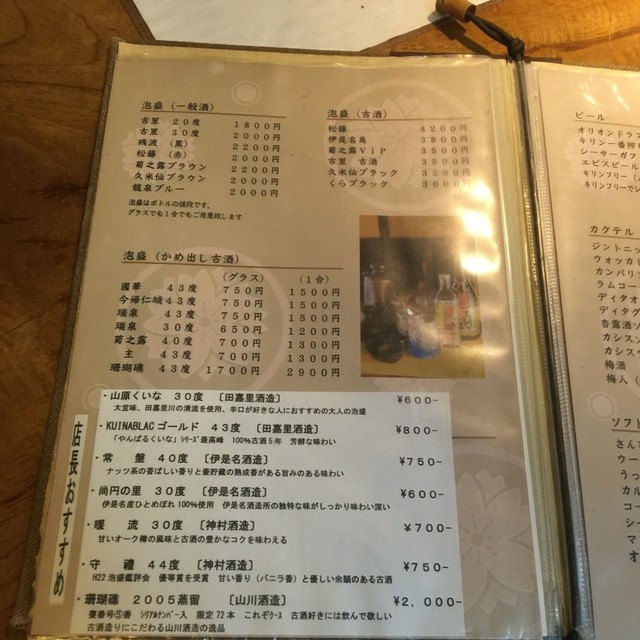 泡盛（一般酒）
古里 20度 1800円
古里 30度 2000円
残波（黒） 2200円
松藤（赤） 2000円
菊之露ブラウン 2200円
久米仙ブラウン 2000円
龍泉ブルー 2000円
泡盛はボトルの値段です。
グラスでも1合でもご用意致します
泡盛（古酒）
松藤 4200円
伊是名島 3800円
菊之露VIP
古里 古酒
久米仙ブラック
くらブラック
泡盛（かめ出し古酒）
（グラス） （1合）
國華 43度 750円 1500円
今帰仁城 43度 750円 1500円
瑞泉 43度 750円 1500円
瑞泉 30度 650円 1200円
菊之露 40度 700円 1300円
主 43度 700円 1300円
珊瑚礁 43度 1700円 2900円
店長おすすめ
・山原くいな 30度 〔田嘉里酒造〕 ¥600-
大宜味、田嘉里川の清流を使用、辛口が好きな人におすすめの大人の泡盛
・KUINABLACゴールド 43度 〔田嘉里酒造〕 ¥800-
「やんばるくいな」シリーズ最高峰 100%古酒5年 芳醇な味わい
・常盤 40度 〔伊是名酒造〕 ¥750-
ナッツ系の香ばしい香りと壷貯蔵の熟成香がある旨みのある味わい
・尚円の里 30度 〔伊是名酒造〕 ¥600-
伊是名産ひとめぼれ100%使用 伊是名酒造所の独特な味がしっかり味わい深い
・暖流 30度 〔神村酒造〕 ¥700-
甘いオーク樽の風味と古酒の豊かなコクを味わえる
・守禮 44度 〔神村酒造〕 ¥750-
H22泡盛鑑評会 優等賞を受賞 甘い香り（バニラ香）と優しい余韻のある古酒
・珊瑚礁 2005蒸留 〔山川酒造〕 ¥2,000-
甕番号⑤番 シリアルナンバー入 限定72本 これぞクース 古酒好きには飲んで欲しい
古酒造りにこだわる山川酒造の逸品
ビール
オリオンドラフ
キリン一番搾
シーサーガフ
エビスビール
キリンフリー
キリンフリーでシ
カクテル
ジントニッ
ウォッカト
カンパリ
ラムコー
ディタオ
ディタグ
杏露酒ソ
カシスソ
カシス
梅酒
梅人（
ソフト
さん
ウー
うっ
カル
コー
シー
マ
オ